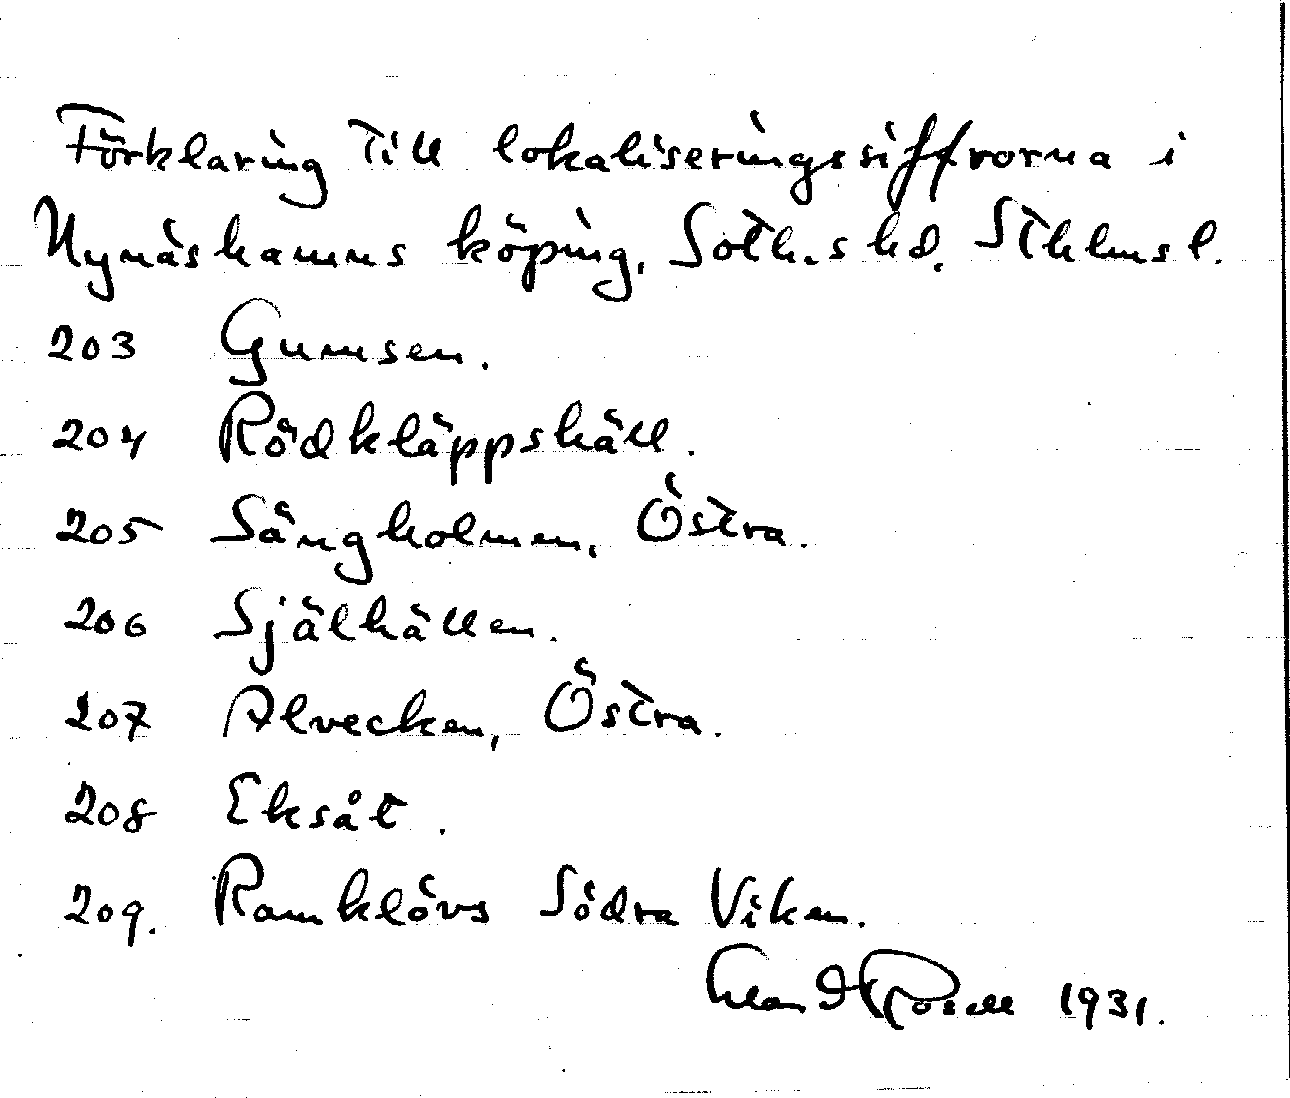 Förklaring till lokaliseringssiffrorna i
Nynäshamns köping, Soth.s hd. Sthlms l.
203 Gumsen.
204 Rödkläppshäll.
205 Sångholmen, Östra.
206 Själhällen.
207 Alvecken, Östra.
208 Eksåt.
209. Ramklövs Södra Viken.
1931.